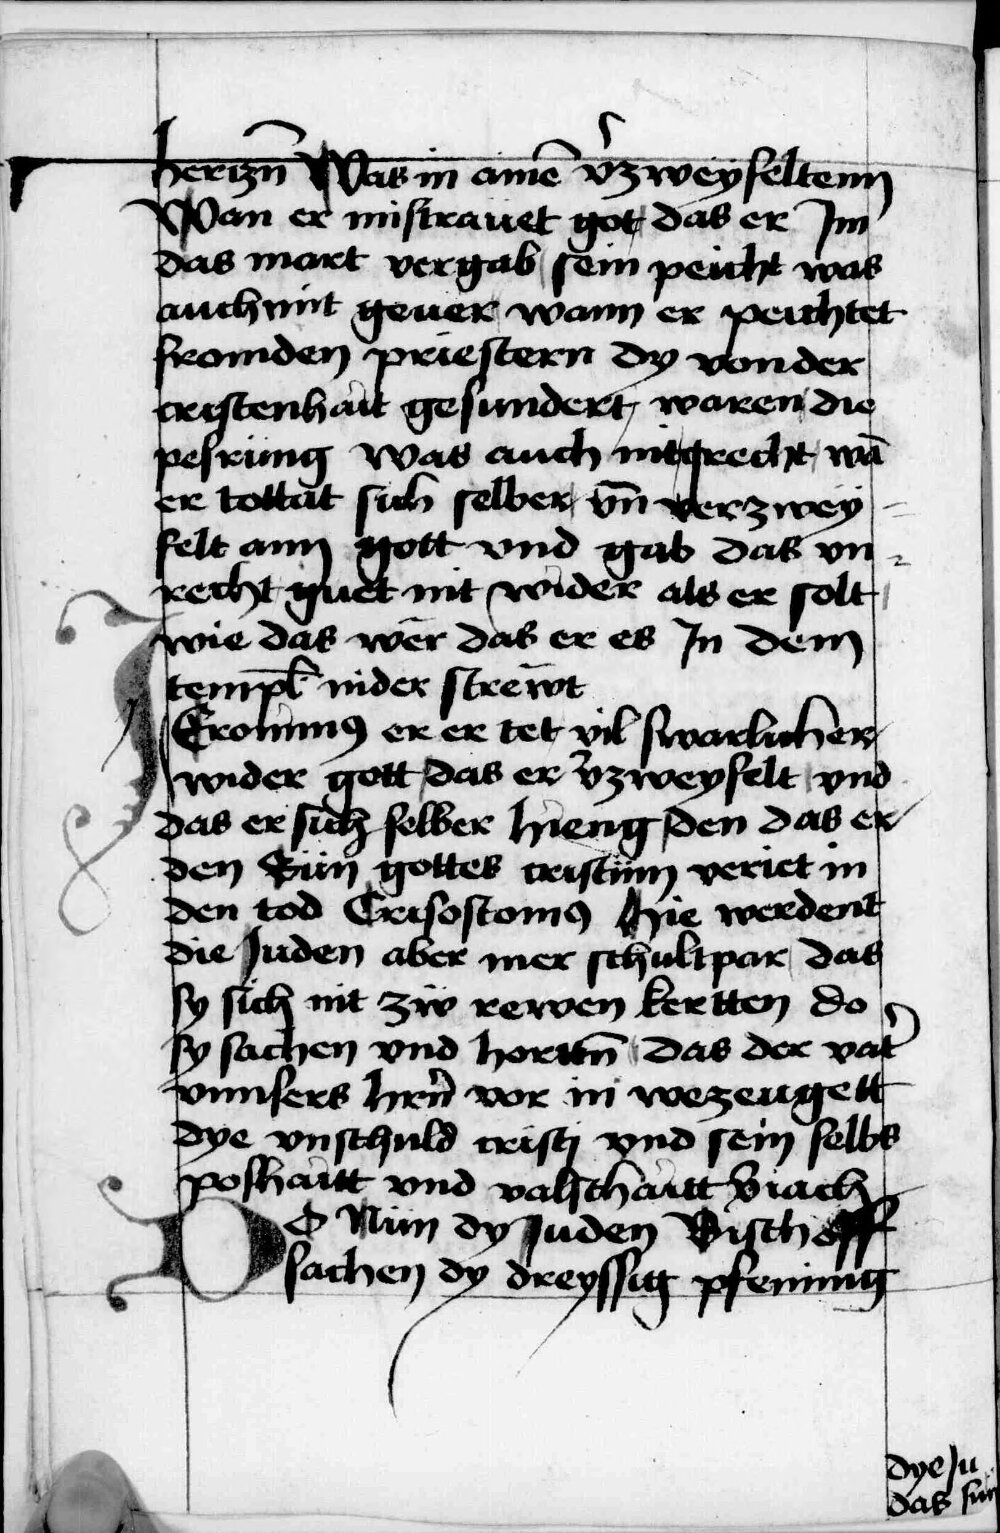 herczn̄ Was in aine͂ v̓zweyfeltenn
Wan er mistrauet got das er Im
das mort vergab sein peicht was
auch nit gever wann er peichtet
fromden priestern dy von der
cristenhait gesundert waren die
pesrüng was auch nit grecht wā
er tottat sich selber vn̄ verzwey
felt ann gott vnd gab das vn
recht guet nit wider als er solt
wie das wër das er es In dem
templ nider strëwt
IEronimꝯ er er tet vil swarlicher
wider gott das er v̓zweyfelt vnd
das er sich selber hieng den das er
den Sün gottes cristum veriet in
den tod Crisostomꝯ hie werdent
die Juden aber mer schultpar das
sy sich nit zw̎ rewen kertten do
sy sachen vnd hortn̄ das der vat̓
vnnsers hrn̄ vor in wezeugett
dye vnschuld cristi vnd sein selbs
poshaitt vnd valschaitt
DO Nün dy Juden Bischoff
sachen dy dreyssig pfenning
dye Ju
das sin